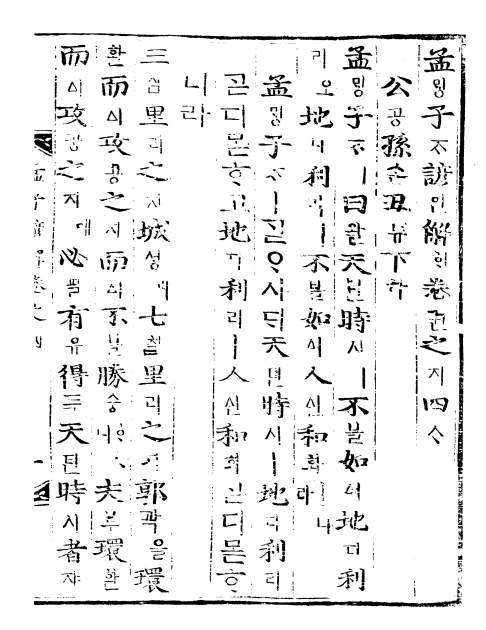 孟ᄆᆡᆼ子ᄌᆞ諺언解ᄒᆡ卷권之지四ᄉᆞ
公공孫손丑튜下하
孟ᄆᆡᆼ子ᄌᆞㅣ曰왈天텬時시ㅣ不블如여地디利
리오地디利리ㅣ不블如여人인和화니라
孟ᄆᆡᆼ子ᄌᆞㅣᄀᆞᆯᄋᆞ샤ᄃᆡ天텬時시ㅣ地디利리
ᄀᆞᆮ디몯ᄒᆞ고地디利리ㅣ人인和화ᄀᆞᆮ디몯ᄒᆞ
니라
三삼里리之지城셩애七칠里리之지郭곽을環
환而이攻공之지而이不블勝승ᄒᆞᄂᆞ니夫부環환
而이攻공之지예必필有유得득天텬時시者쟈
孟子諺解卷之四 一